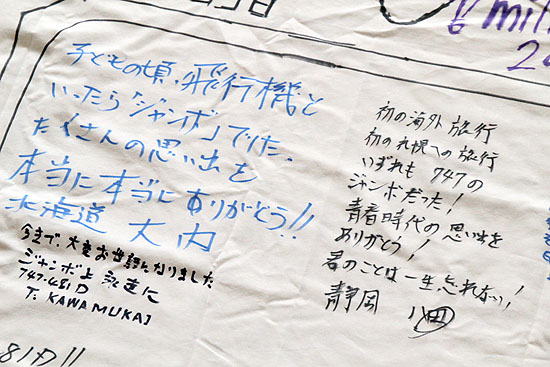 子どもの頃、飛行機と
いったら「ジャンボ」でした。
たくさんの思い出を
本当に本当にありがとう!!
北海道 大内
今まで、大変お世話になりました
ジャンボよ 永遠に
747-481D
T. KAWAMUKAI
初の海外旅行
初の札幌への旅行
いずれも 747の
ジャンボだった!
青春時代の思い出を
ありがとう!
君のことは一生忘れない!
静岡
24